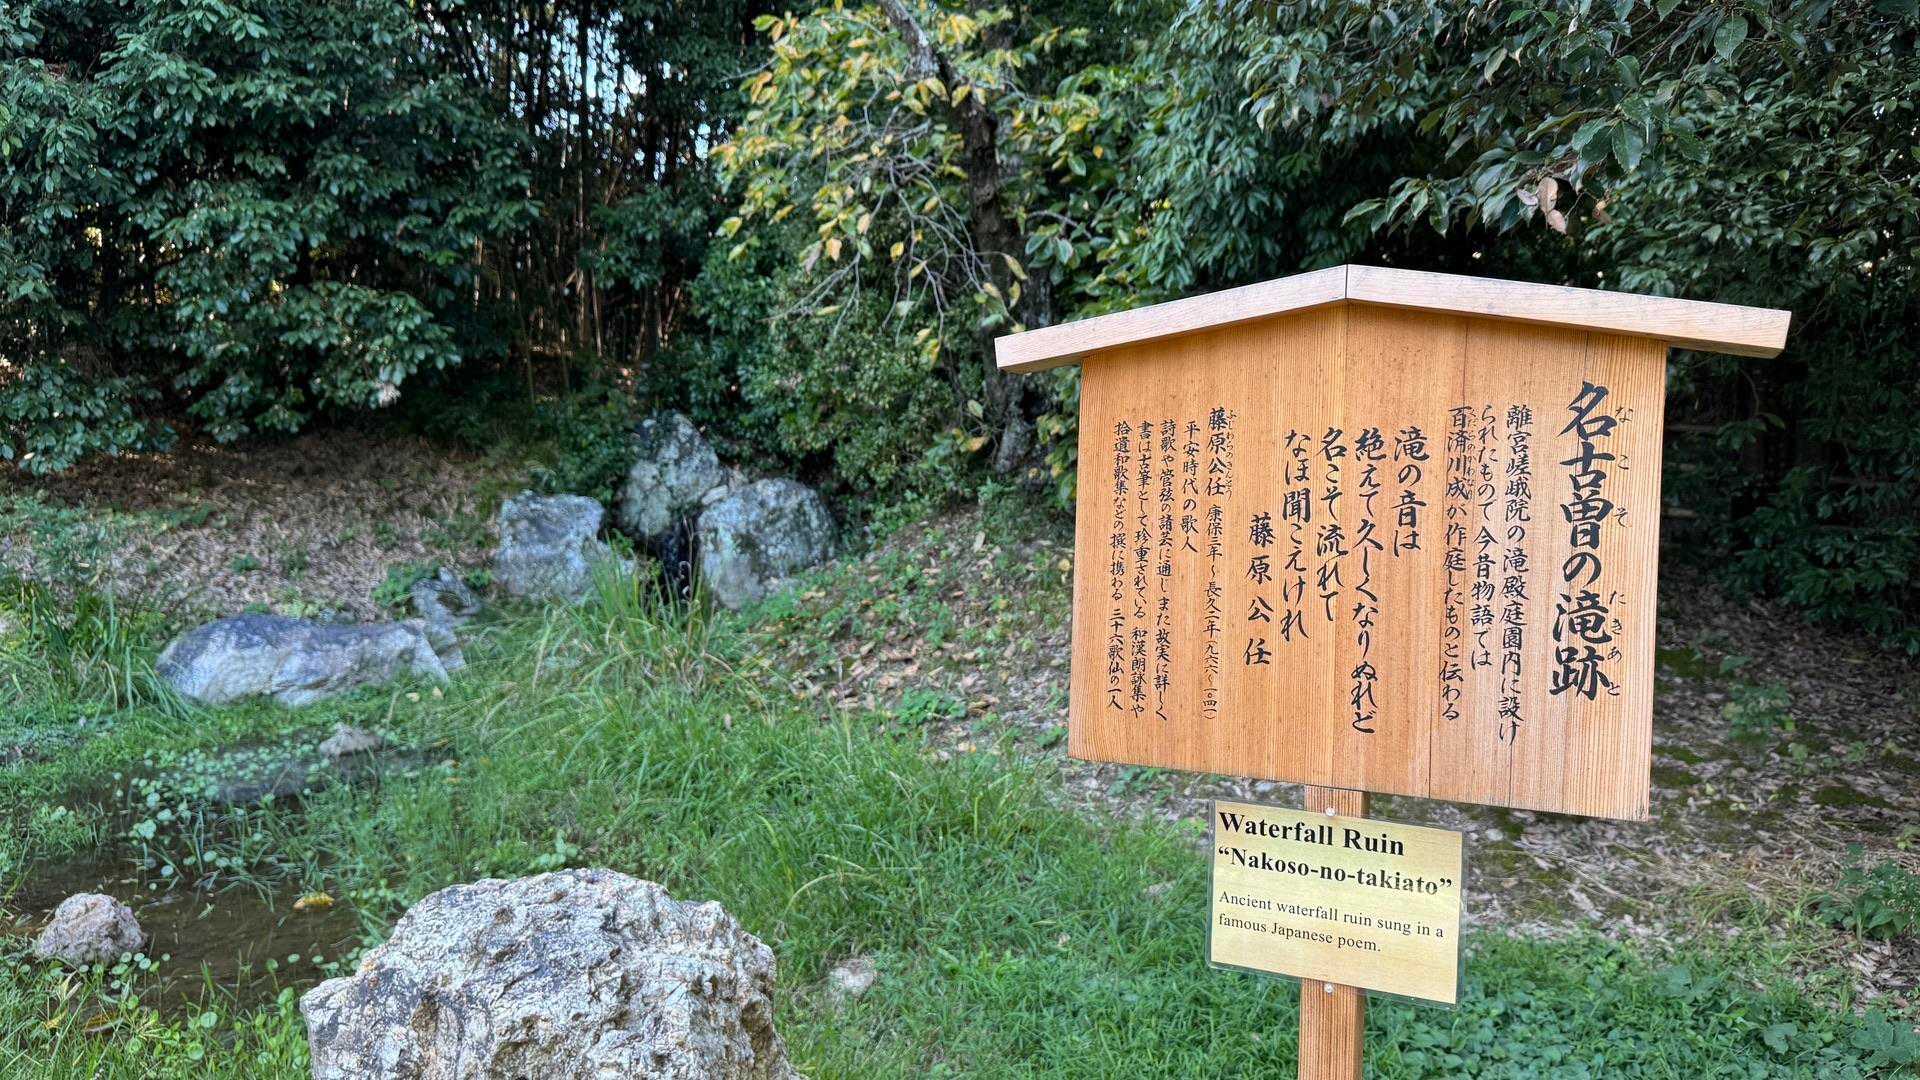 名古曽の滝跡
なこそ たきあと
離宮嵯峨院の滝殿庭園内に設け
られたもので今昔物語では
百済川成が作庭したものと伝わる
滝の音は
絶えて久しくなりぬれど
名こそ流れて
なほ聞こえけれ
藤原公任
藤原公任 康保三年～長久二年(九六六～一〇四一)
ふじわらのきんとう
平安時代の歌人
詩歌や管弦の諸芸に通じまた故実に詳しく
書は古筆として珍重されている 和漢朗詠集や
拾遺和歌集などの撰に携わる 三十六歌仙の一人
Waterfall Ruin
“Nakoso-no-takiato”
Ancient waterfall ruin sung in a
famous Japanese poem.